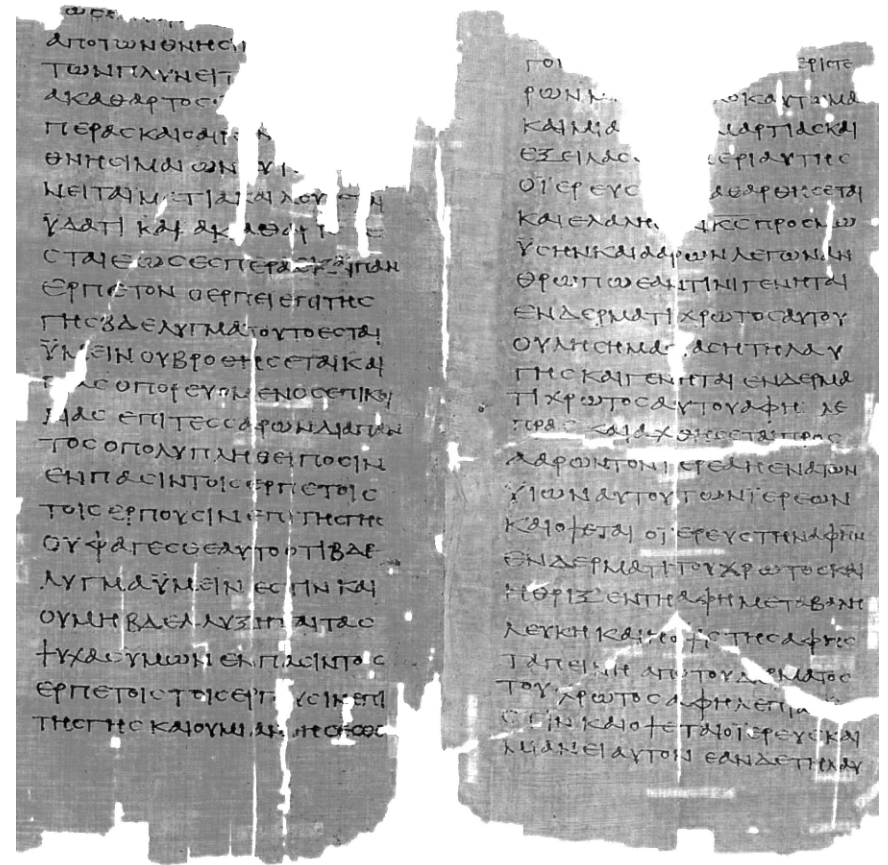 ΑΠΟΤΩΝΘΝΗΣΙ
ΤΩΝΠΛΥΝΕΙΤ
ΑΚΑΘΑΡΤΟΣ
ΠΕΡΑΣΚΑΙΟΑΙΡ
ΘΝΗΣΙΜΑΙΩΝ
ΝΕΙΤΑΙΜΑΤΙΑΚΑΙΛΟΥ
ΫΔΑΤΙΚΑΙΑΚΑΘΑΡΤΟΣΕ
ΣΤΑΙΕΩΣΕΣΠΕΡΑΣΚΑΙΠΑΝ
ΕΡΠΕΤΟΝΟΕΡΠΕΙΕΠΙΤΗΣ
ΓΗΣΒΔΕΛΥΓΜΑΤΟΥΤΟΕΣΤΑΙ
ΫΜΕΙΝΟΥΒΡΟΘΗΣΕΤΑΙΚΑΙ
ΑΣΟΠΟΡΕΥΟΜΕΝΟΣΕΠΙΚΟΙ
ΛΙΑΣΕΠΙΤΕΣΣΑΡΩΝΔΙΑΠΑΝ
ΤΟΣΟΠΟΛΥΠΛΗΘΕΙΠΟΣΙΝ
ΕΝΠΑΣΙΝΤΟΙΣΕΡΠΕΤΟΙΣ
ΤΟΙΣΕΡΠΟΥΣΙΝΕΠΙΤΗΣΓΗΣ
ΟΥΦΑΓΕΣΘΕΑΥΤΟΟΤΙΒΔΕ
ΛΥΓΜΑΫΜΕΙΝΕΣΤΙΝΚΑΙ
ΟΥΜΗΒΔΕΛΛΥΞΗΤΑΙΤΑΣ
ΨΥΧΑΣΥΜΩΝΕΝΠΑΣΙΝΤΟΙΣ
ΕΡΠΕΤΟΙΣΤΟΙΣΕΡΠΟΥΣΙΝΕΠΙ
ΤΗΣΓΗΣΚΑΙΟΥΜΙΑΝΘΗΣΕΣΘΕ
ΕΡΙΣΤΕ
ΡΩΝ ΟΚΑΥΤΩΜΑ
ΚΑΙΜΙΑ ΜΑΡΤΙΑΣΚΑΙ
ΕΞΕΙΛΑΣ ΠΕΡΙΑΥΤΗΣ
ΟΪΕΡΕΥΣ ΚΑΘΑΡΘΗΣΕΤΑΙ
ΚΑΙΕΛΑΛΗΣ ΚΣΠΡΟΣΜΩ
ΫΣΗΝΚΑΙΑΑΡΩΝΛΕΓΩΝΑΝ
ΘΡΩΠΩΕΑΝΤΙΝΙΓΕΝΗΤΑΙ
ΕΝΔΕΡΜΑΤΙΧΡΩΤΟΣΑΥΤΟΥ
ΟΥΛΗΣΗΜΑΣΙΑΣΗΤΗΛΑΥ
ΓΗΣΚΑΙΓΕΝΗΤΑΙΕΝΔΕΡΜΑ
ΤΙΧΡΩΤΟΣΑΥΤΟΥΑΦΗΛΕ
ΠΡΑΣΚΑΙΑΧΘΗΣΕΤΑΙΠΡΟΣ
ΑΑΡΩΝΤΟΝΙΕΡΕΑΗΕΝΑΤΩΝ
ΫΙΩΝΑΥΤΟΥΤΩΝΪΕΡΕΩΝ
ΚΑΙΟΨΕΤΑΙΟΪΕΡΕΥΣΤΗΝΑΦΗΝ
ΕΝΔΕΡΜΑΤΙΤΟΥΧΡΩΤΟΣΚΑΙ
ΗΘΡΙΞΕΝΤΗΑΦΗΜΕΤΑΒΑΛΗ
ΛΕΥΚΗΚΑΙΗΟΨΙΣΤΗΣΑΦΗΣ
ΤΑΠΕΙΝΗΑΠΟΤΟΥΔΕΡΜΑΤΟΣ
ΤΟΥΧΡΩΤΟΣΑΦΗΛΕΠΡΑ
ΣΤΙΝΚΑΙΟΨΕΤΑΙΟΪΕΡΕΥΣΚΑΙ
ΜΙΑΝΕΙΑΥΤΟΝΕΑΝΔΕΤΗΛΑΥ